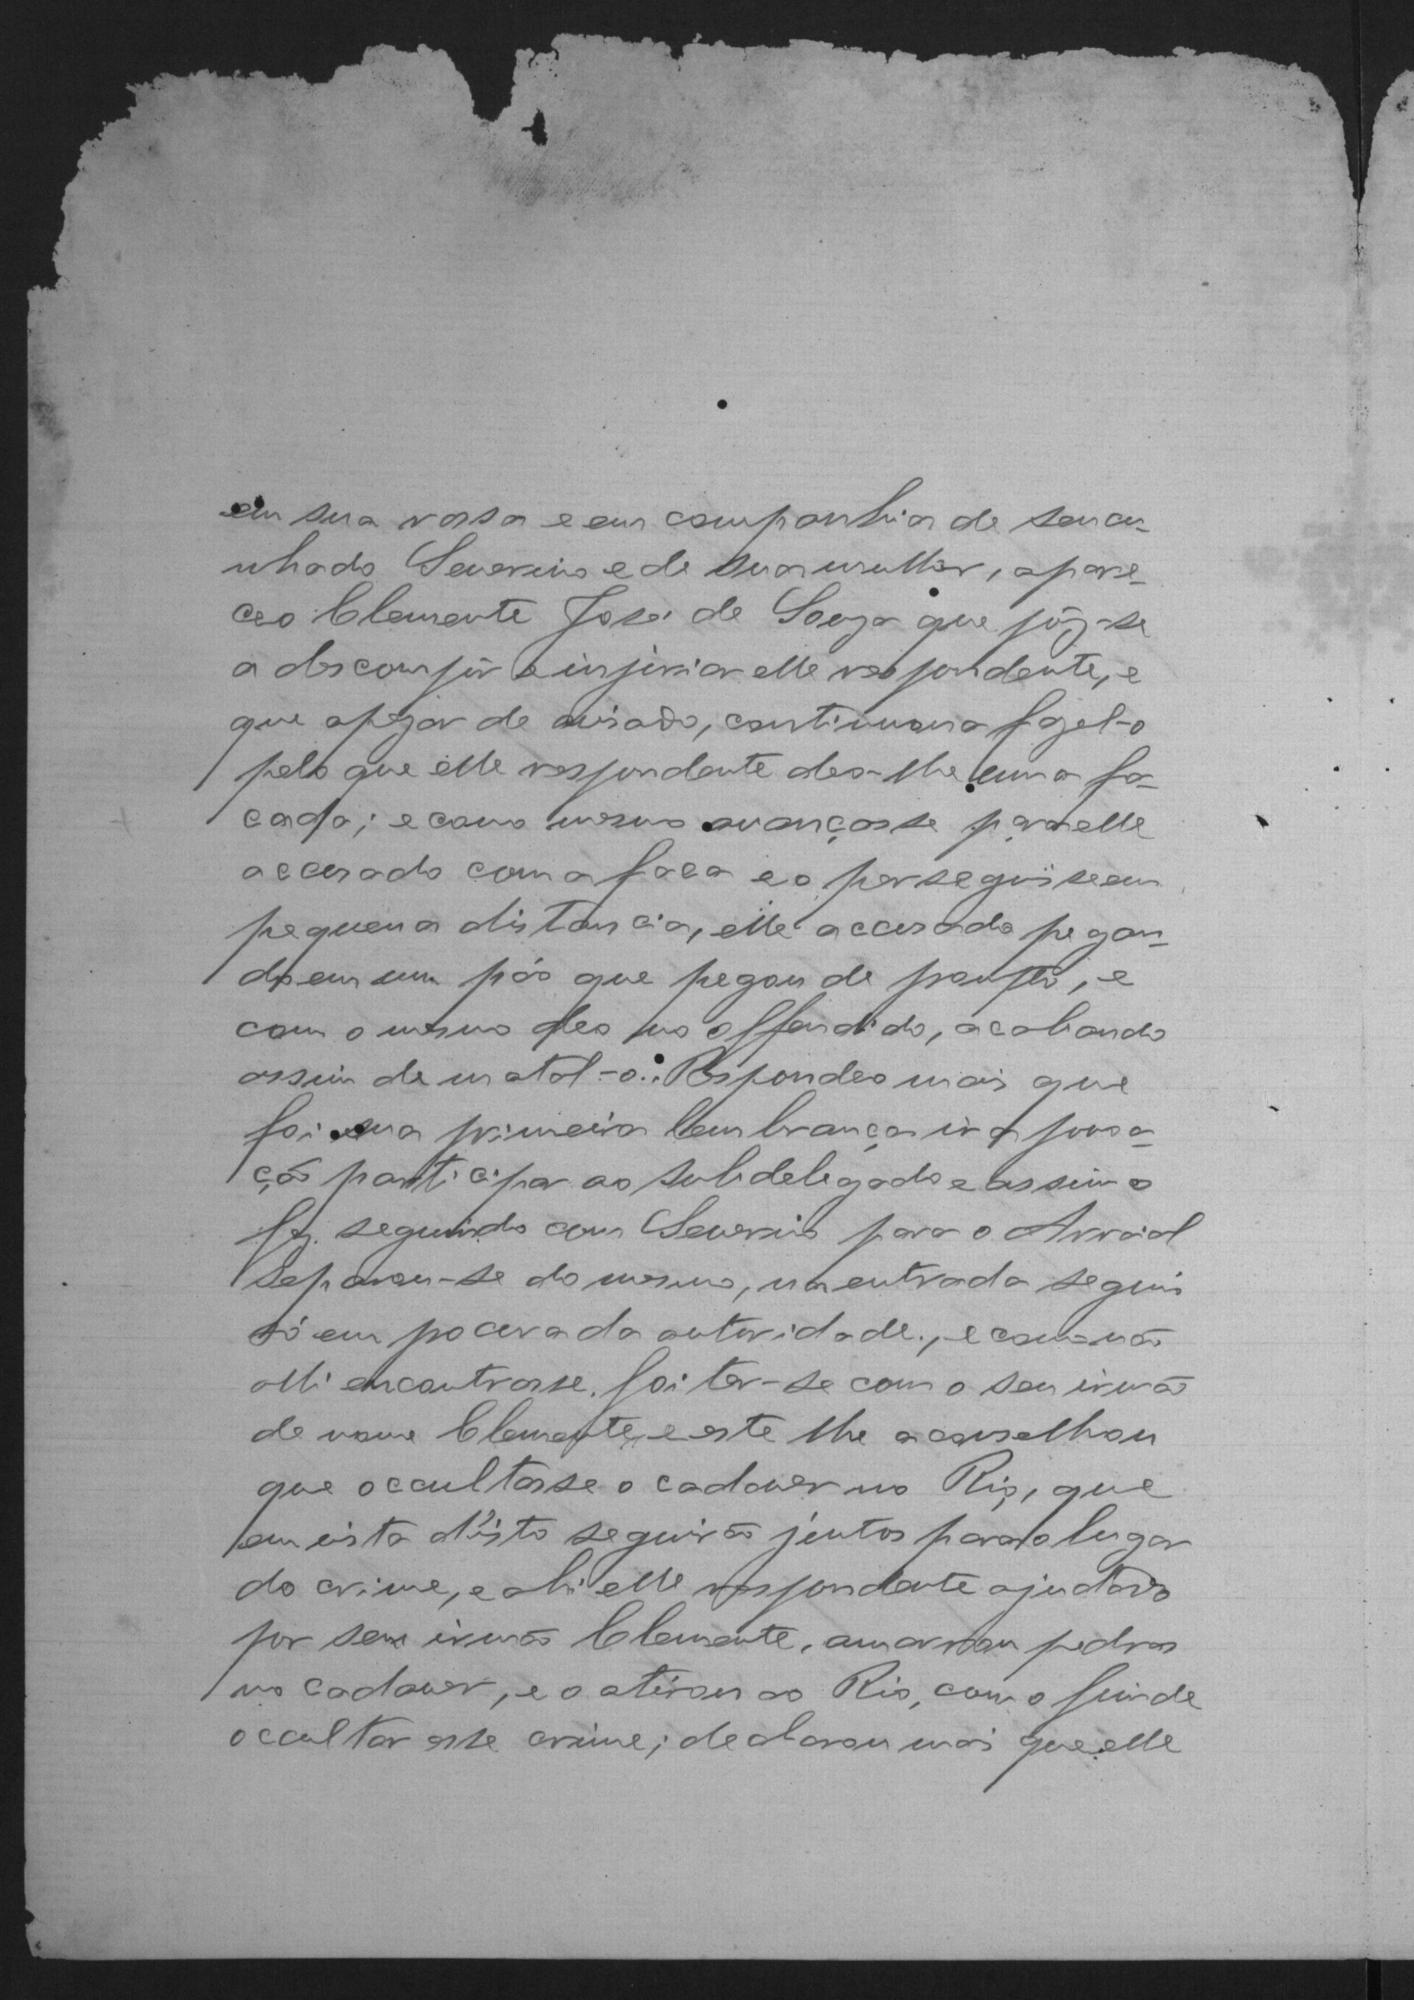 em sua rossa e em companhia de seu cu-
nhado Severino e de sua mulher, apare-
ceo Clemente José de Souza que pôz-se
a descompôr e injuriar elle respondente, e
que apezar de avisado, continuava fazel-o
pelo que elle respondente deo-lhe uma fa-
cada; e como mesmo avançasse para elle
accusado com a faca e o perseguisse em
pequena distancia, elle accusado pegan-
do em um páo que pegou de prompto, e
com o mesmo deo no offendido, acabando
assim de matal-o. Respondeo mais que
foi sua primeira lembrança ir a povoa-
ção participar ao subdelegado e assim o
fez. seguindo com Severino para o Arraial
separou-se do mesmo, na entrada seguio
só em procura da autoridade, e como não
alli encontrasse, foi ter-se com o seu irmão
de nome Clemente, e este lhe aconselhou
que occultasse o cadaver no Rio, que
em vista d'isto seguirão juntos para o lugar
do crime, e ahi elle respondente ajudado
por seu irmão Clemente, amarrou pedras
no cadaver, e o atirou ao Rio, com o fim de
occultar esse crime; declarou mais que elle